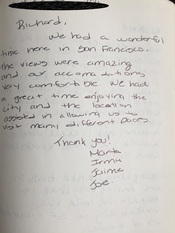 Richard,
We had a wonderful
time here in San Francisco.
the views were amazing
and our accomodations
very comfortable. We had
a great time enjoying the
city and the location
assisted in allowing us to
visit many different places.
Thank you!
Marta
Irma
Jaime
Jose